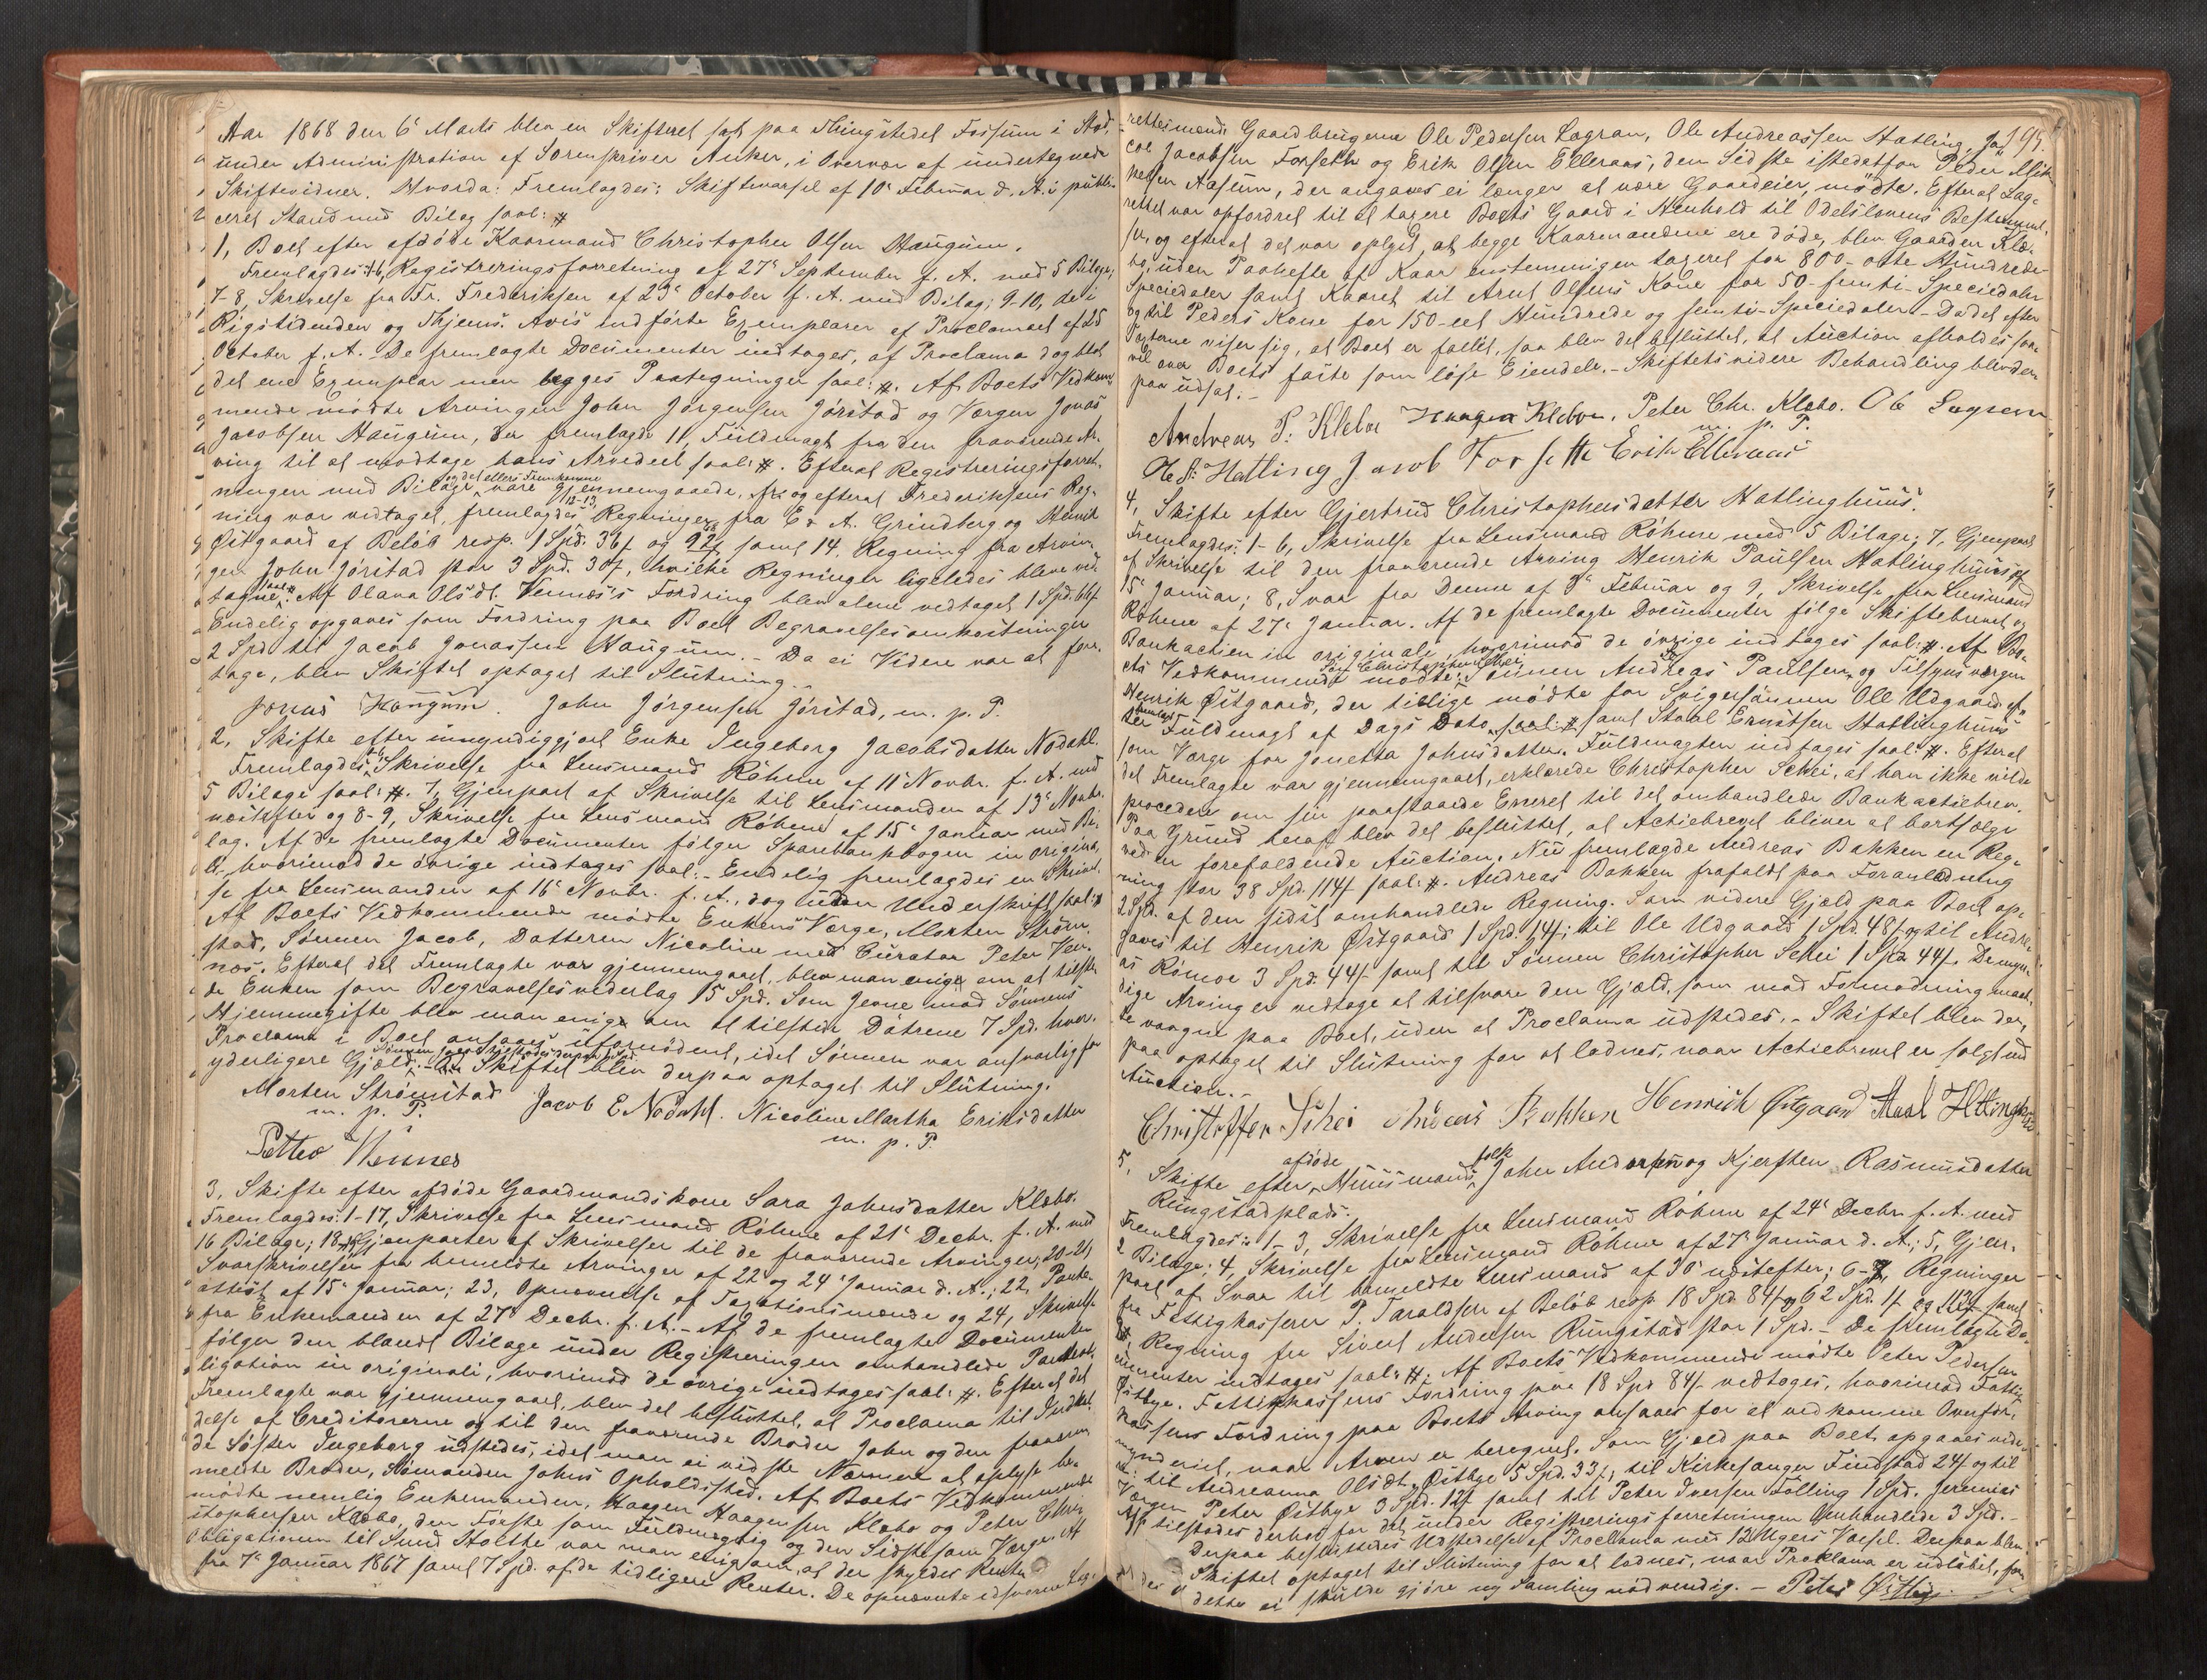 Aar 1868 den 6' Marts blev en Skifteret sat paa Thingstedet Fossum i Stod,
under Administration af Sorenskriver Anker, i Overvær af undertegnede
Skiftevidner. Hvorda: Fremlagdes: Skiftevarsel af 10' Februar d. A. i publi-
ceret Stand med Bilag saal: #
1, Boet efter afdöde Kaarmand Christopher Olsen Haugum.
Fremlagdes: 1-6, Registreringsforretning af 27' September f. A. med 5 Bilage;
7-8, Skrivelse fra Fr. Frederiksen af 23' October f. A. med Bilag; 9-10, de i
Rigstidenden og Thjems. Avis indförte Exemplarer af Proclamaet af 25
October f. A. De fremlagte Documenter indtages, af Proclama dog blot
det ene Exemplar men begges Paategninger saal: #. Af Boets Vedkom-
mende mödte Arvingen John Jörgensen Jörstad og Værgen Jonas
Jacobsen Haugum, der fremlagde 11, Fuldmagt fra den fraværende Ar-
ving til at modtage hans Arvedeel saal: #. Efterat Registreringsforret-
ningen med Bilage og det ellers Fremkomne vare gjennemgaaede, og efterat Frederiksens Reg-
ning var vedtaget, fremlagdes 12-13, Regninger fra E. A. Grindberg og Henrik
Östgaard af Belöb resp. 1 Spd. 36 s og 92 s samt 14, Regning fra Arvin-
gen John Jörstad stor 3 Spd. 30 s, hvilke Regninger ligeledes bleve ved-
tagne saal: #. Af Olava Olsdt. Vennæs's Fordring blev alene vedtaget 1 Spd.
Endelig opgaves som Fordring paa Boet Begravelsesomkostninger
2 Spd. til Jacob Jonassen Haugum. - Da ei Videre var at fore-
tage, blev Skiftet optaget til Slutning.
Jonas Haugum. John Jörgensen Jörstad, m. p. P.
2, Skifte efter umyndiggjort Enke Ingeborg Jacobsdatter Nödahl.
Fremlagdes: 1-6, Skrivelse fra Lensmand Röhme af 11' Novbr. f. A. med
5 Bilage saal: #. 7, Gjenpart af Skrivelse til Lensmanden af 13' Novbr.
næstefter og 8-9, Skrivelse fra Lensmand Röhme af 15' Januar med Bi-
lag. Af de fremlagte Documenter fölger Sparebankbogen in origina-
li, hvorimod de övrige indtages saal: - Endelig fremlagdes en Skrivel-
se fra Lensmanden af 16' Novbr. f. A., dog uden Underskrift saal: #
Af Boets Vedkommende mödte Enkens Værge, Morten Ström-
stad, Sönnen Jacob, Datteren Nicoline med Curator Peter Ven-
næs. Efterat det Fremlagte var gjennemgaaet, blev man enige om at tilstaa
de Enken som Begravelsesvederlag 15 Spd. Som Jevne mod Sönnens
Hjemmegifte blev man enige om at tilstede Dötrene 7 Spd. hver.
Proclama i Boet ansaaes ufornödent, idet Sönnen var ansvarlig for
yderligere Gjæld. - Skiftet blev derpaa optaget til Slutning.
Morten Strömstad Jacob E Nödahl. Nicoline Martha Eriksdatter
m. p. P. m. p. P.
Petter Wennes
3, Skifte efter afdöde Gaardmandskone Sara Johnsdatter Klæbo.
Fremlagdes: 1-17, Skrivelse fra Lensmand Röhme af 21' Decbr. f. A. med
16 Bilage; 18-19, Gjenparter af Skrivelser til de fraværende Arvinger; 20-21,
Svarskrivelser fra bemeldte Arvinger af 22 og 24' Januar d. A.; 22, Pante-
attest af 15' Januar; 23, Opnævnelse af Taxationsmænd og 24, Skrivelse
fra Enkemanden af 27' Decbr. f. A. - Af de fremlagte Documenter
fölger den blandt Bilage under Registreringen omhandlede Panteob-
ligation in originali, hvorimod de övrige indtages saal: #. Efterat det
Fremlagte var gjennemgaaet, blev det besluttet, at Proclama til Indkal-
delse af Creditorerne og til den fraværende Broder John og den fraværen-
de Söster Ingeborg udstedes, idet man ei vidste Nærmere at oplyse be-
meldte Broder, Sömanden Johns Opholdsted. Af Boets Vedkommende
mödte nemlig Enkemanden, Haagen Haagensen Klæbo og Peter Chri-
stophersen Klæbo, den Förste som Fuldmægtig og den Sidste som Værge. Af
Obligationen til Sund Holthe var man enig om, at der skyldes Renter
fra 7' Januar 1867 samt 7 Spd. af de tidligere Renter. De opnævnte edsvorne Lag-
195.
rettesmænd Gaardbrugerne Ole Pedersen Lagran, Ole Andreassen Hatling, Ja-
cob Jacobsen Forseth og Erik Olsen Elleraas, den Sidste istedetfor Peder Mik-
kelsen Aasum, der angaves ei længer at være Gaardeier, mödte. Efterat Lag-
rettet var opfordret til at taxere Boets Gaard i Henhold til Odelslovens Bestemmel-
ser, og efterat det var oplyst, at begge Kaarmændene ere döde, blev Gaarden Klæ-
bo, uden Paahefte af Kaar eenstemmigen taxeret for 800 - otte Hundrede
Speciedaler samt Kaaret til Arnt Olsens Kone for 50 - femti - Speciedaler
og til Peders Kone for 150 - eet Hundrede og femti - Speciedaler. - Da det efter
Taxterne viser sig, at Boet er fallit, saa blev det besluttet, at Auction afholdes saa-
vel over Boets faste som löse Eiendele. - Skiftets videre Behandling blev der-
paa udsat. -
Andreas P. Klebo Haagen Klebo. Peter Chr. Klebo. Ole Lagran
m. p. P.
O. A. Hatling Jacob Forseth Erik Elleraas
4, Skifte efter Gjertrud Christophersdatter Hatlinghuus.
Fremlagdes: 1-6, Skrivelse fra Lensmand Röhme med 5 Bilage; 7, Gjenpart
af Skrivelse til den fraværende Arving Henrik Paulsen Hatlinghuus af
15' Januar; 8, Svar fra Denne af 8' Februar og 9, Skrivelse fra Lensmand
Röhme af 27' Januar. Af de fremlagte Documenter fölge Skiftebrevet og
Bankactien in originale, hvorimod de övrige indtages saal: #. Af Bo-
ets Vedkommende mödte: Sön Christopher Schei, Sönnen Andreas Paulsen og Tilsynsværgen
Henrik Östgaard, der tillige mödte for Svigersönnen Ole Udgaard ef-
ter Fuldmagt af Dags Dato, samt Staal Ernstsen Hatlinghuus
som Værge for Jonetta Johnsdatter. Fuldmagten indtages saal: #. Efterat
det Fremlagte var gjennemgaaet, erklærede Christopher Schei, at han ikke vilde
procedere om sin paastaaede Eneret til det omhandlede Bankactiebrev.
Paa Grund heraf blev det besluttet, at Actiebrevet bliver at bortsælge
ved en forefaldende Auction. Nu fremlagde Andreas Bakken en Reg-
ning stor 38 Spd. 114 s saal: #. Andreas Bakken frafaldt paa Foranledning
2 Spd. af den sidst omhandlede Regning. Som videre Gjæld paa Boet op-
gaves til Henrik Östgaard 1 Spd. 14 s; til Ole Udgaard 1 Spd. 48 s og til Andre-
as Römoe 3 Spd. 44 s samt til Sönnen Christopher Schei 1 Spd. 44 s. De myn-
dige Arvinger vedtage at tilsvare den Gjæld, som mod Formodning maat-
te vorgne paa Boet, uden at Proclama udstedes. - Skiftet blev der-
paa optaget til Slutning for at lodnes, naar Actiebrevet er solgt ved
Auction. -
Christoffer Schei Andreas Bakken Henrich Östgaard Staal Hatlinghus
5, Skifte efter afdöde Huusmandsfolk John Andersen og Kjersten Rasmusdatter
Rungstadplads.
Fremlagdes: 1-3, Skrivelse fra Lensmand Röhme af 24' Decbr. f. A. med
2 Bilage; 4, Skrivelse fra Lensmand Röhme af 27' Januar d. A.; 5, Gjen-
part af Svar til bemeldte Lensmand af 30' næstefter; 6-7, Regninger
fra Fattigkasserer P. Taraldsen af Belöb resp. 18 Spd. 84 s og 62 Spd. samt
Regning fra Sivert Andersen Rungstad stor 1 Spd. - De fremlagte Do-
cumenter indtages saal: #. Af Boets Vedkommende mödte Peter Pedersen
Östbye. Fattigkassens Fordring paa 18 Spd. 84 s vedtoges, hvorimod Fattig-
kassens Fordring paa Boets Arving ansaaes for at vedkomme Overfor-
mynderiet, naar Arven er beregnet. Som Gjæld paa Boet opgaves vide-
re: til Andreanna Olsdt. Östbye 5 Spd. 33 s, til Kirkesanger Findstad 24 s og til
Værgen Peter Östbye 3 Spd. 12 s samt til Peter Iversen Fölling 1 Spd. Jeremias
tilstodes derhos for det under Registreringsforretningen Omhandlede 3 Spd. -
Derpaa besluttedes Udstedelse af Proclama med 12 Ugers Varsel. Derpaa blev
Skiftet optaget til Slutning for at lodnes, naar Proklama er udlöbet, for-
dette ei skulde gjöre ny Samling nödvendig. - Peter Östbye.